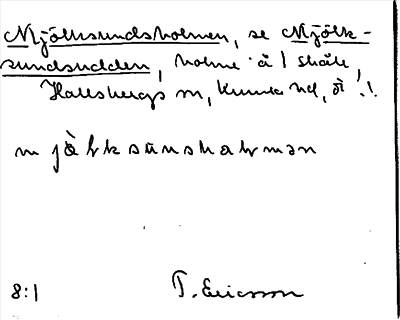 Mjölksundsholmen, se Mjölk-
sundsudden, holme å 1 skär
Hallsbergs sn, Kumla hd, ö!.
mjàlksúnshalmən
8:1 T. Ericsson